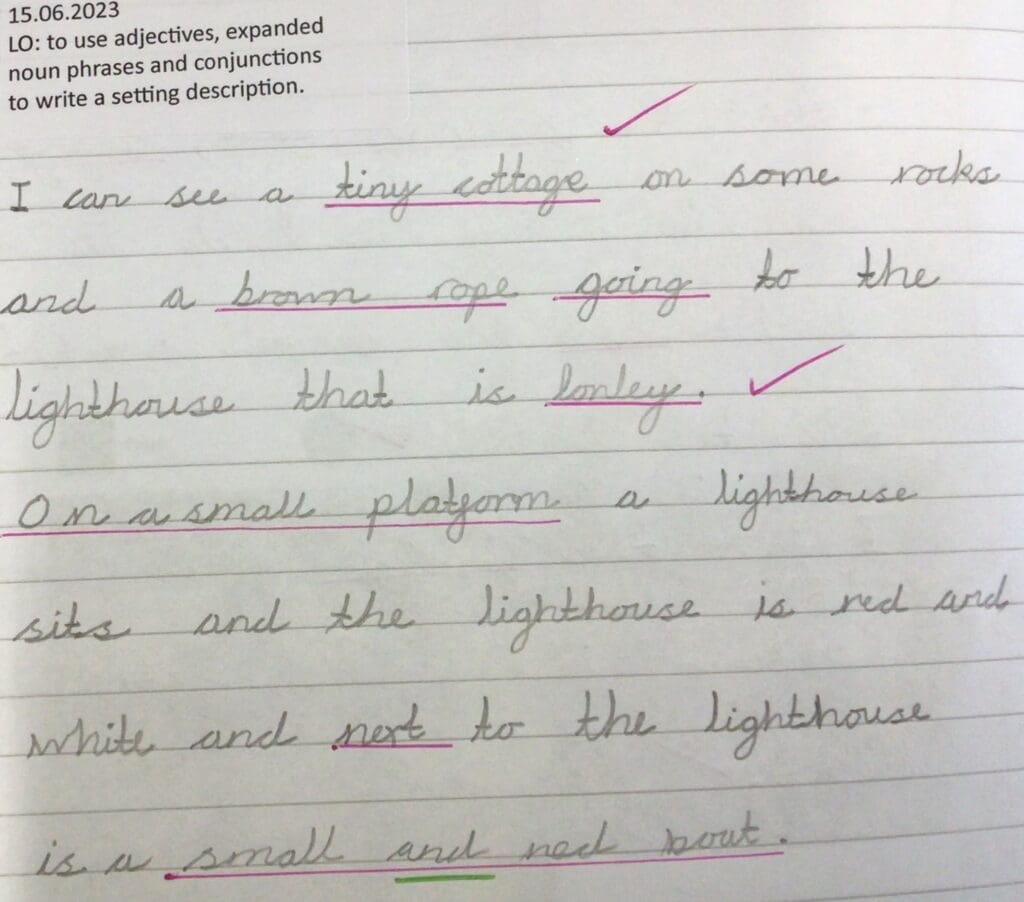 15.06.2023
LO: to use adjectives, expanded
noun phrases and conjunctions
to write a setting description.
I can see a tiny cottage on some rocks
and a brown rope going to the
lighthouse that is lonley.
On a small platform a lighthouse
sits and the lighthouse is red and
white and next to the lighthouse
is a small and red boat.